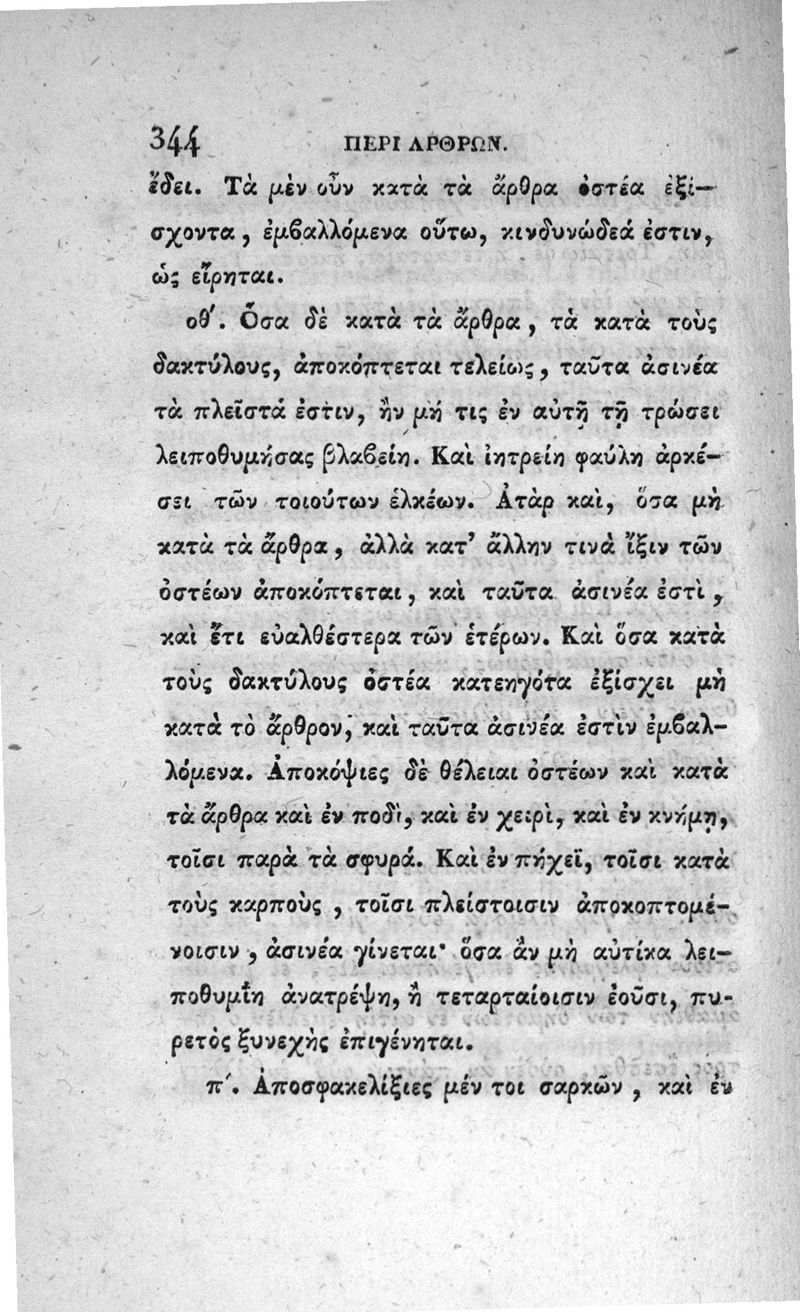 344 ΠΕΡΙ ΑΡΘΡΩΝ.
ἔδει. Τὰ μὲν οὖν κατὰ τὰ ἄρθρα ὀστέα ἐξί—
σχοντα, ἐμϐαλλόμενα οὕτω, κινδυνώδεά ἐστιν,
ὡς εἴρηται.
οθ΄. Ὅσα δὲ κατὰ τὰ ἄρθρα, τὰ κατὰ τοὺς
δακτύλους, ἀποκόπτεται τελείως, ταῦτα ἀσινέα
τὰ πλεῖστά ἐστιν, ἢν μή τις ἐν αὐτῇ τῇ τρώσει
λειποθυμήσας βλαϐείη. Καὶ ἰητρείη φαύλη ἀρκέ—
σει τῶν τοιούτων ἑλκέων. Ἀτὰρ καὶ, ὅσα μὴ
κατὰ τὰ ἄρθρα, ἀλλὰ κατ’ ἄλλην τινὰ ἴξιν τῶν
ὀστέων ἀποκόπτεται, καὶ ταῦτα ἀσινέα ἐστὶ,
καὶ ἔτι εὐαλθέστερα τῶν ἑτέρων. Καὶ ὅσα κατὰ
τοὺς δακτύλους ὀστέα κατεηγότα ἐξίσχει μὴ
κατὰ τὸ ἄρθρον, καὶ ταῦτα ἀσινέα ἐστὶν ἐμϐαλ—
λόμενα. Ἀποκόψιες δὲ θέλειαι ὀστέων καὶ κατὰ
τὰ ἄρθρα καὶ ἐν ποδὶ, καὶ ἐν χειρὶ, καὶ ἐν κνήμῃ,
τοῖσι παρὰ τὰ σφυρά. Καὶ ἐν πήχεϊ, τοῖσι κατὰ
τοὺς καρποὺς, τοῖσι πλείστοισιν ἀποκοπτομέ—
νοισιν, ἀσινέα γίνεται· ὅσα ἂν μὴ αὐτίκα λει—
ποθυμΐη ἀνατρέψῃ, ἢ τεταρταίοισιν ἐοῦσι, πυ-
ρετὸς ξυνεχὴς ἐπιγένηται.
π΄. Ἀποσφακελίξιες μέν τοι σαρκῶν, καὶ ἐν